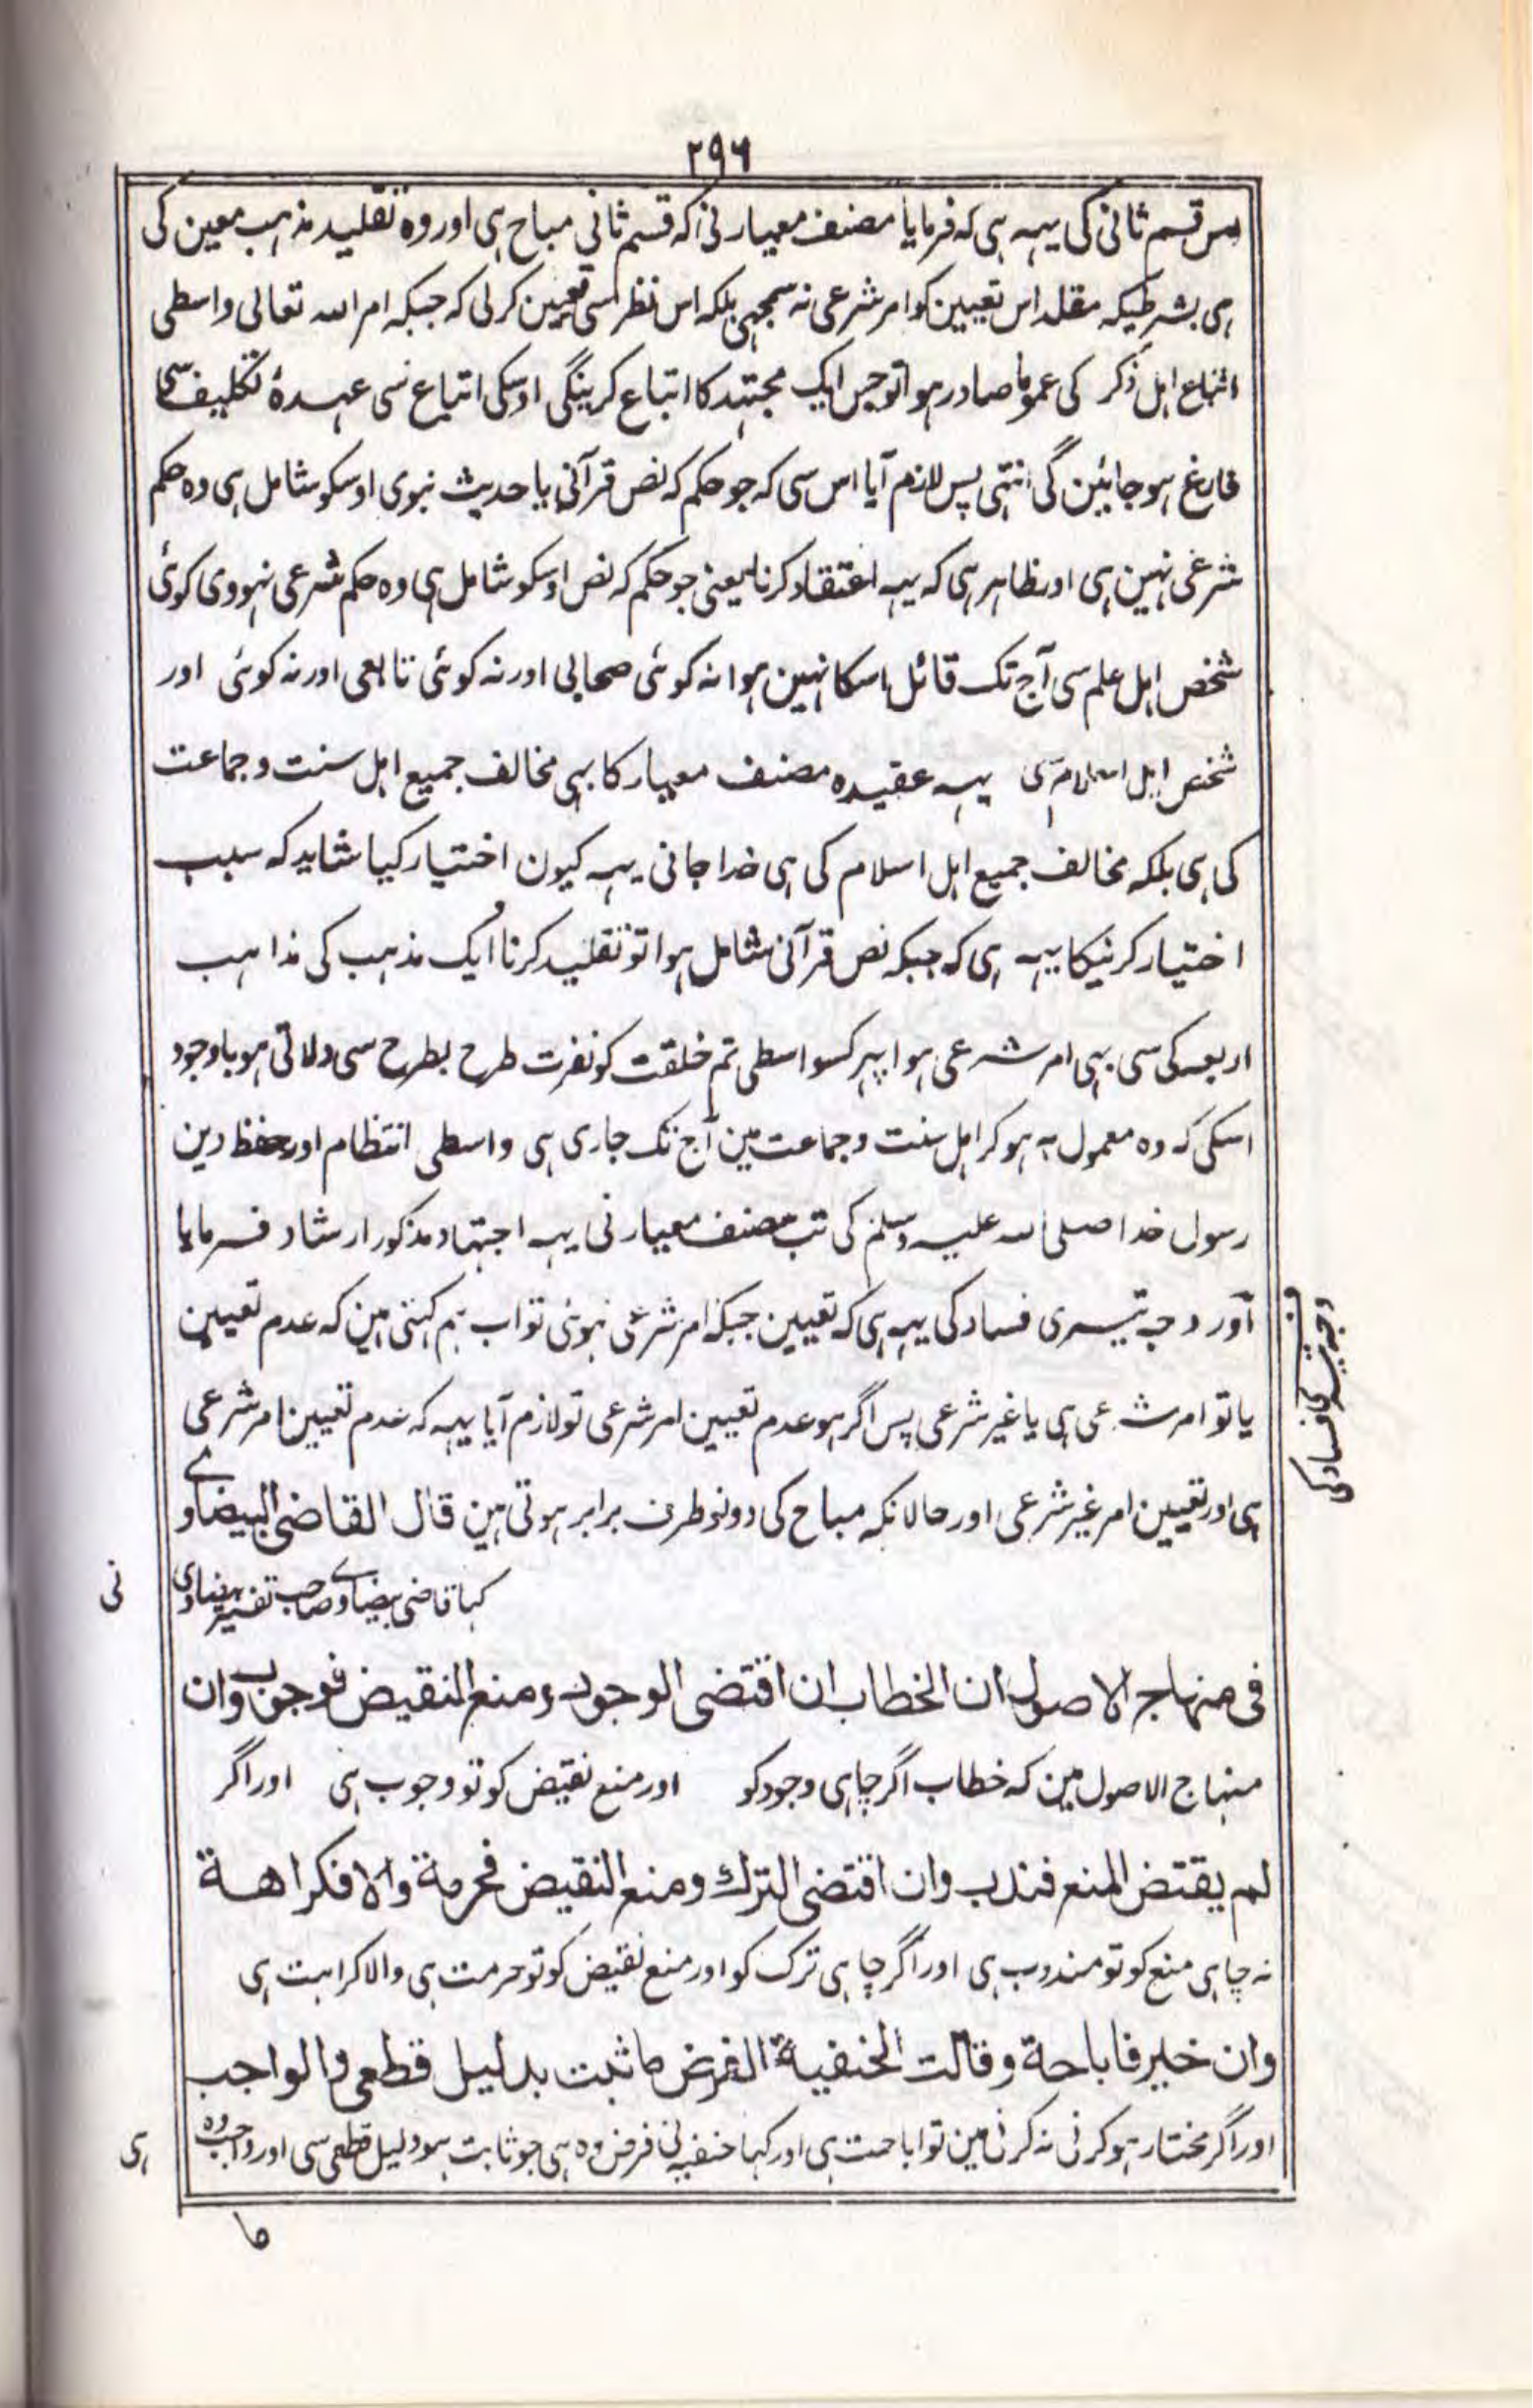 ٢٩٦
اس قسم ثانی کی یہہ ہی کہ فرمایا مصنف معیار نی کہ قسم ثانی مباح ہی اور وہ تقلید مذہب معین کی
ہی بشرطیکہ مقلد اس تعیین کو امر شرعی نہ سمجہی بلکہ اس نظر سی تعیین کرلی کہ جبکہ امر اللہ تعالی واسطی
اتباع اہل ذکر کی عموما صادر ہوا تو جس ایک مجتہد کا اتباع کرینگی اوسکی اتباع سی عہدۂ تکلیف سی
فارغ ہو جائین گی انتہی پس لازم آیا اس سی کہ جو حکم کہ نص قرآنی یا حدیث نبوی اوسکو شامل ہی وہ حکم
شرعی نہین ہی اور ظاہر ہی کہ یہہ اعتقاد کرنا یعنی جو حکم کہ نص اوسکو شامل ہی وہ حکم شرعی نہووی کوئی
شخص اہل علم سی آج تک قائل اسکا نہین ہوا نہ کوئی صحابی اور نہ کوئی تابعی اور نہ کوئی اور
شخص اہل اسلام سی یہہ عقیدہ مصنف معیار کا بہی مخالف جمیع اہل سنت و جماعت
کی ہی بلکہ مخالف جمیع اہل اسلام کی ہی خدا جانی یہہ کیون اختیار کیا شاید کہ سبب
اختیار کرنیکا یہہ ہی کہ جبکہ نص قرآنی شامل ہوا تو تقلید کرنا ایک مذہب کی مذاہب
اربعہ کی سی بہی امر شرعی ہوا پہر کسواسطی تم خلقت کو نفرت طرح بطرح سی دلاتی ہو باوجود
اسکی کہ وہ معمول بہ ہو کر اہل سنت و جماعت مین آج تک جاری ہی واسطی انتظام اور حفظ دین
رسول خدا صلی اللہ علیہ وسلم کی تب مصنف معیار نی یہہ اجتہاد مذکور ارشاد فرمایا
آور وجہ تیسری فساد کی یہہ ہی کہ تعیین جبکہ امر شرعی نہوئی تو اب ہم کہتی ہین کہ عدم تعیین
وجہ تیسری فساد کی
یا تو امر شرعی ہی یا غیر شرعی پس اگر ہو عدم تعیین امر شرعی تو لازم آیا یہہ کہ عدم تعیین امر شرعی
ہی اور تعیین امر غیر شرعی اور حالانکہ مباح کی دونو طرف برابر ہوتی ہین قال القاضی البیضاوے
کہا قاضی بیضاوے صاحب تفسیر بیضاوی نی
فی منہاج الاصول ان الخطاب ان اقتضی الوجود ومنع النقیض فوجوب وان
منہاج الاصول مین کہ خطاب اگر چاہی وجود کو اور منع نقیض کو تو وجوب ہی اور اگر
لم یقتض المنع فندب وان اقتضی الترك ومنع النقیض فحرمة والا فکراهة
نہ چاہی منع کو تو مندوب ہی اور اگر چاہی ترک کو اور منع نقیض کو تو حرمت ہی والا کراہت ہی
وان خیر فاباحة وقالت الحنفیة الفرض ما ثبت بدلیل قطعی والواجب
اور اگر مختار ہو کرنی نہ کرنی مین تو اباحت ہی اور کہا حنفیہ نی فرض وہ ہی جو ثابت ہو دلیل قطعی سی اور واجب وہ ہی
ما